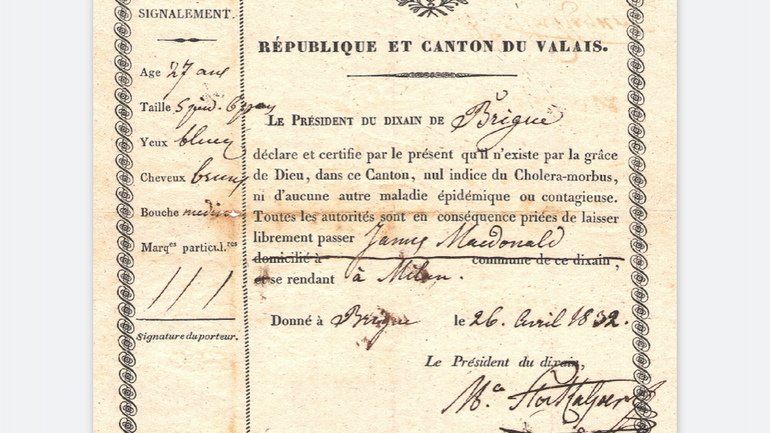 SIGNALEMENT.
Age 27 ans
Taille 5 pied. 6
Yeux bleux
Cheveux bruns
Bouche
Marq.es particul.res
Signature du porteur.
RÉPUBLIQUE ET CANTON DU VALAIS.
LE PRÉSIDENT DU DIXAIN DE Brigue
déclare et certifie par le présent qu'il n'existe par la grâce
de Dieu, dans ce Canton, nul indice du Cholera-morbus,
ni d'aucune autre maladie épidémique ou contagieuse.
Toutes les autorités sont en conséquence priées de laisser
librement passer James Macdonald
domicilié à commune de ce dixain,
et se rendant à Milan.
Donné à Brigue le 26. Avril 1832.
Le Président du dixain,